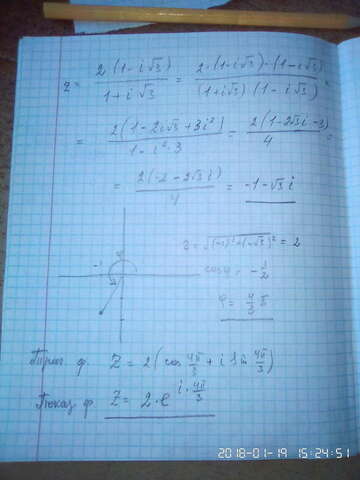 z = 2(1-i√3) / 1+i√3 = 2·(1-i√3)·(1-i√3) / (1+i√3)(1-i√3) =
= 2(1-2i√3+3i²) / 1-i²·3 = 2(1-2√3i-3) / 4 =
= 2(-2-2√3i) / 4 = -1-√3i
-1
r = √(-1)²+(-√3)² = 2
cosφ = -1/2
φ = 4/3 π
Триг. ф. Z = 2(cos 4π/3 + i sin 4π/3)
Показ. ф. Z = 2·e^(i·4π/3)
2018-01-19 15:24:51